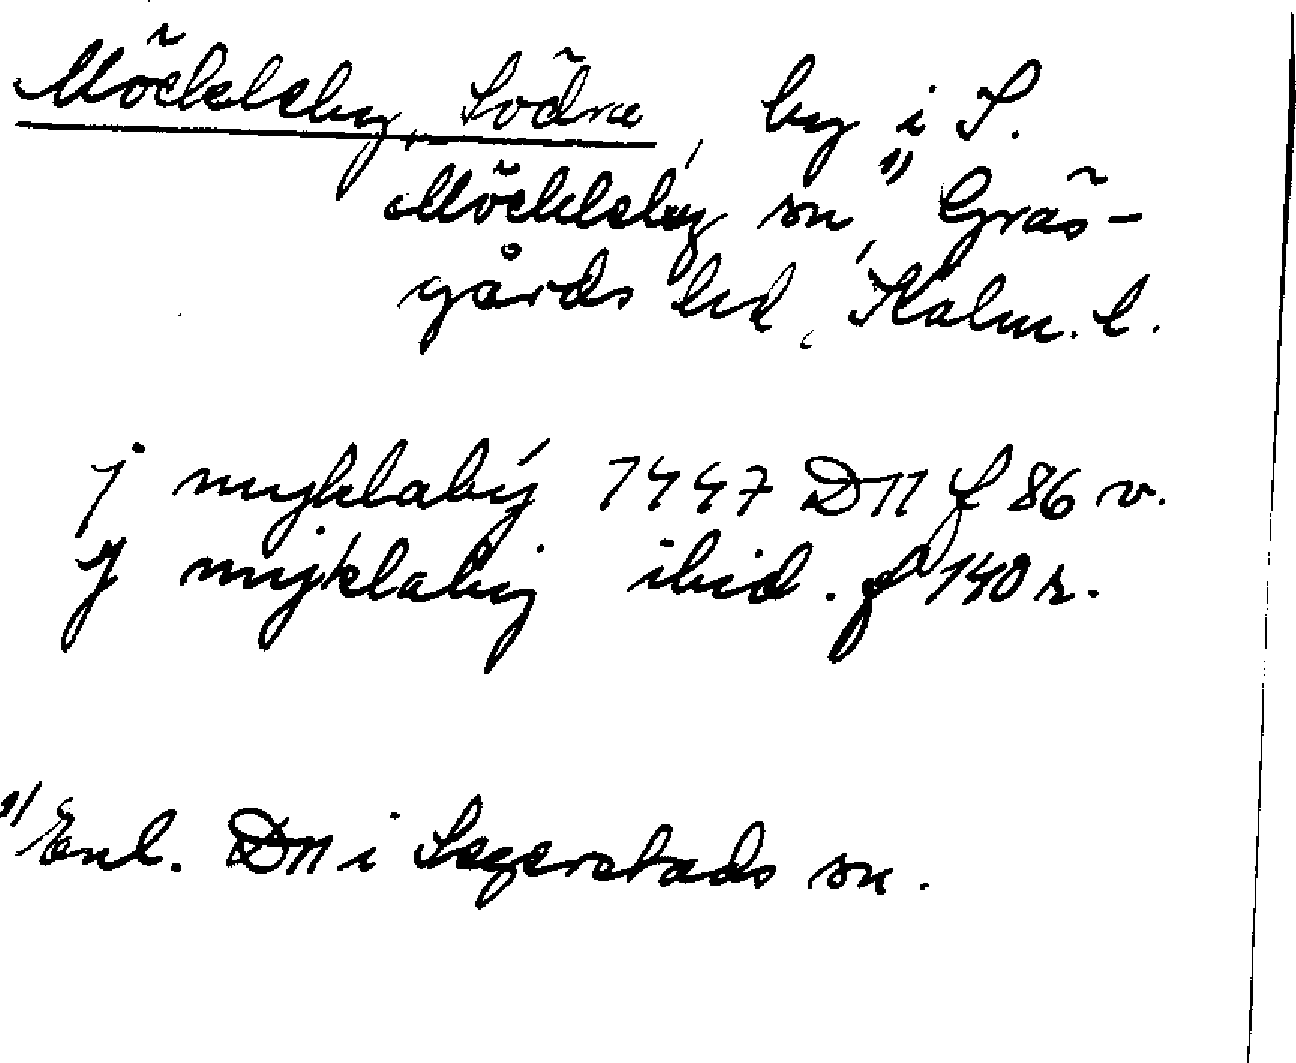 Möckleby, Södra, by i S.
Möckleby sn,¹⁾ Gräs-
gårds hd, Kalm. l.
j myklabÿ 1447 D11 f 86 v.
J myklabÿ ibid. f 140 r.
¹⁾ Enl. D11 i Segerstads sn.